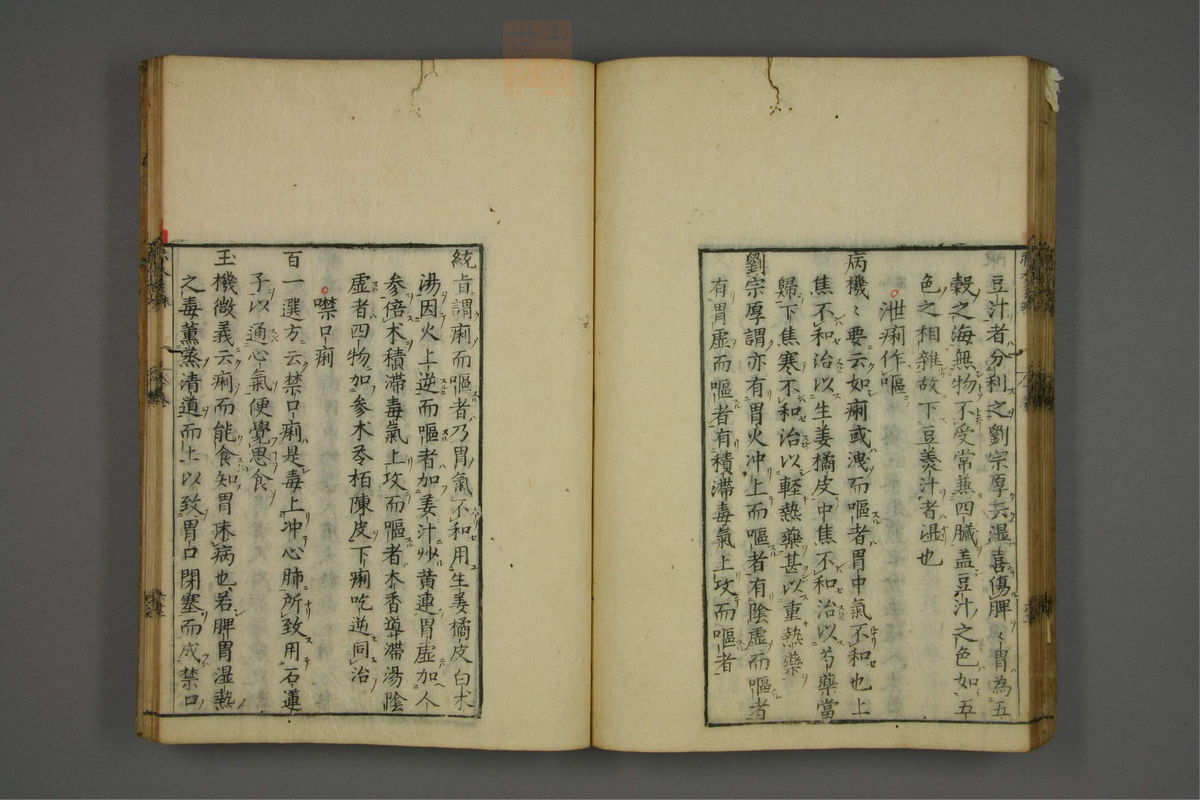 豆汁者分利之劉宗厚云湿喜傷脾〻胃為五
穀之海無物不受常兼四臓盖豆汁之色如五
色之相雜故下豆羙汁者湿也
泄痢作嘔
病機〻要云如痢或洩而嘔者胃中氣不和也上
焦不和治以生姜橘皮中焦不和治以芍藥當
歸下焦寒不和治以軽熱藥甚以重熱藥
劉宗厚謂亦有胃火冲上而嘔者有陰虚而嘔者
有胃虚而嘔者有積滞毒氣上攻而嘔者
統㫖謂痢而嘔者乃胃氣不和用生姜橘皮白朮
湯因火上逆而嘔者加姜汁炒黄連胃虚加人
参倍朮積滞毒氣上攻而嘔者木香導滞湯陰
虚者四物加参朮苓栢陳皮下痢吃逆同治
噤口痢
百一選方云禁口痢是毒上冲心肺所致用石蓮
子以通心氣便覺思食
玉機微義云痢而能食知胃未病也若脾胃湿熱
之毒薫蒸清道而上以致胃口閉塞而成禁口